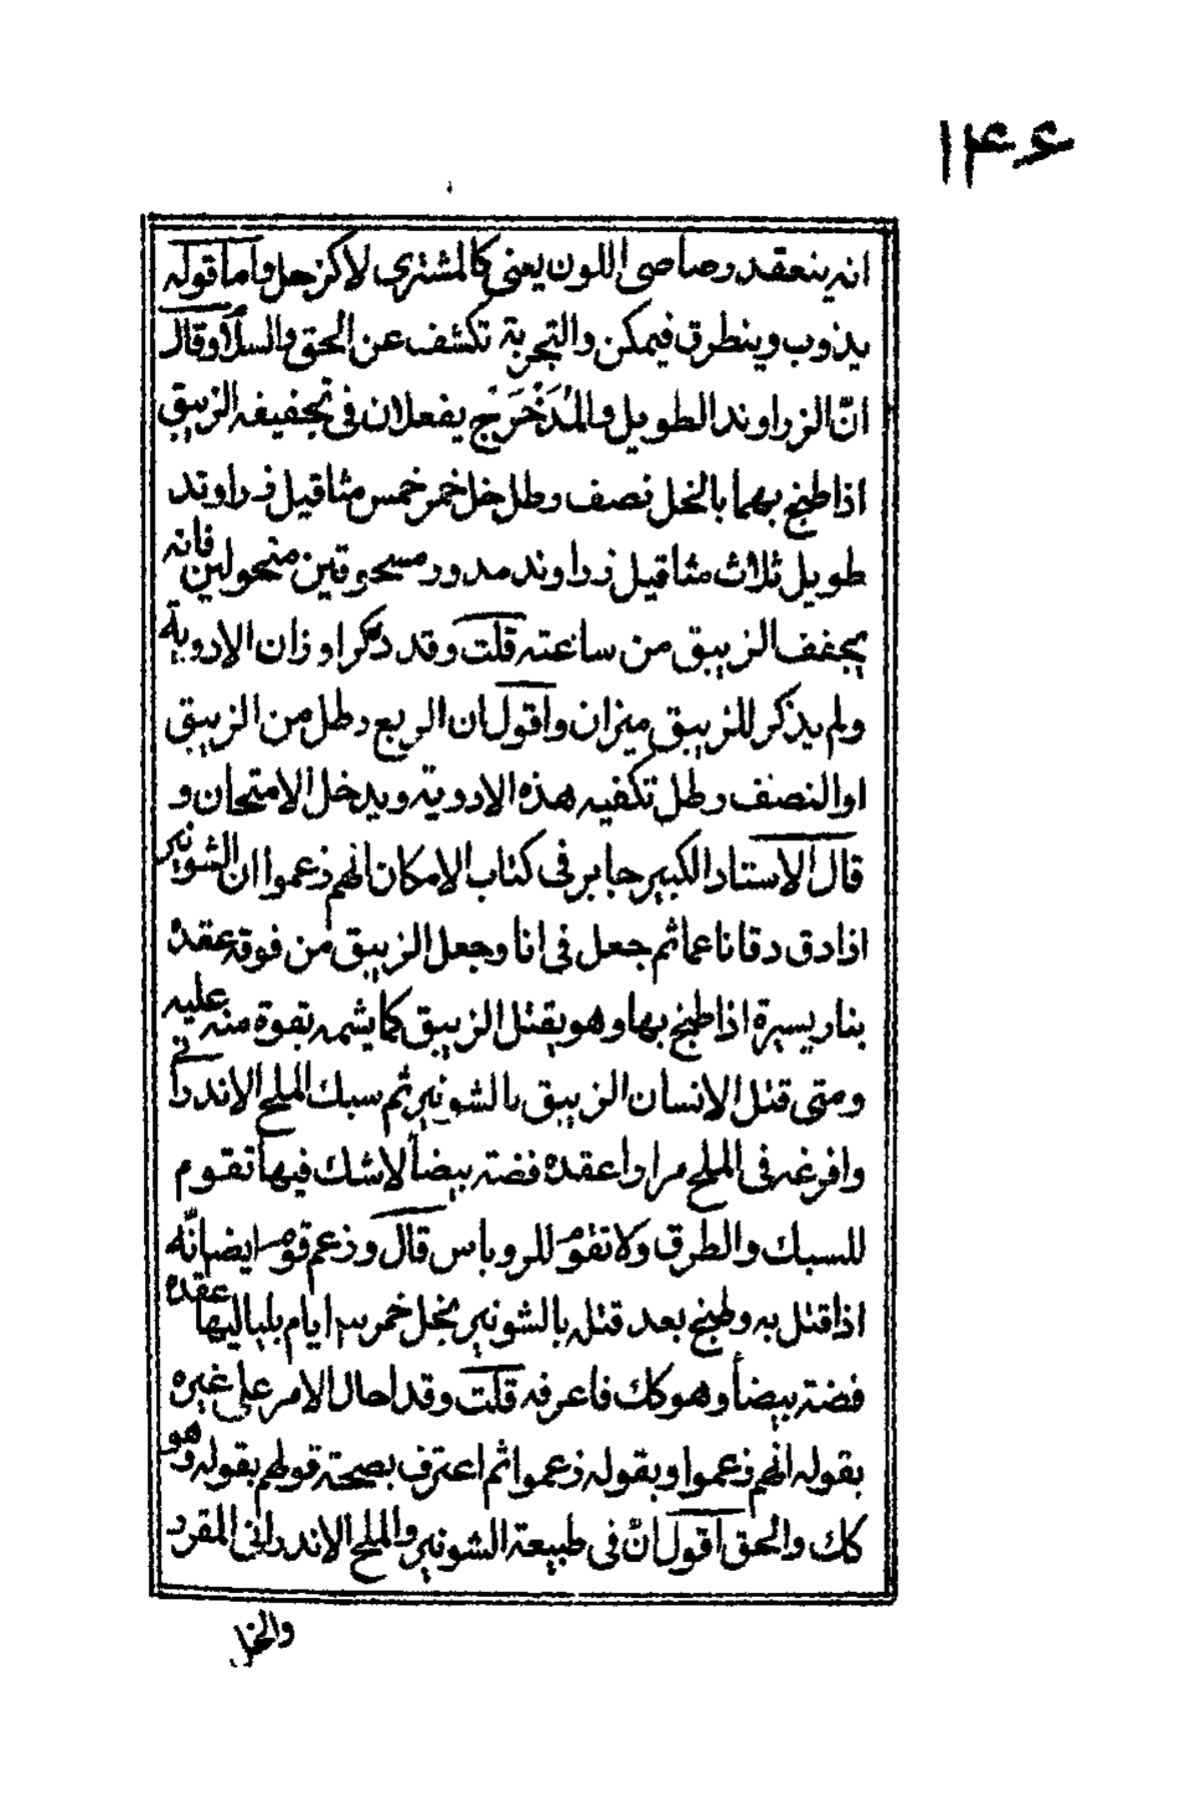 ۱۴۶
انه ينعقد رصاصى اللون يعنى كالمشترى لاكزحل واما قوله
يذوب وينطرق فيمكن والتجربة تكشف عن الحق والسلام وقال
انّ الزراوند الطويل والمُدَحْرَج يفعلان فى تجفيفه الزيبق
اذا طبخ بهما بالخل نصف رطل خل خمر خمس مثاقيل زراوند
طويل ثلاث مثاقيل زراوند مدور مسحوقين منحولين فانه
يجفف الزيبق من ساعته قلت وقد ذكر اوزان الادوية
ولم يذكر للزيبق ميزان واقول ان الربع رطل من الزيبق
او النصف رطل تكفيه هذه الادوية ويدخل الامتحان و
قال الاستاد الكبير جابر فى كتاب الامكان انهم زعموا ان الشونيز
اذا دق دقا ناعما ثم جعل فى انا وجعل الزيبق من فوقه عقده
بنار يسيرة اذا طبخ بها وهو يقتل الزيبق كما يشمه بقوة منه عليه
ومتى قتل الانسان الزيبق بالشونيز ثم سبك الملح الاندرانى
وافرغه فى الملح مرارا عقده فضة بيضأ لاشك فيها تقوم
للسبك والطرق ولا تقوم للروباس قال وزعم قوم ايضا انّه
اذا قتل به وطبخ بعد قتله بالشونيز بخل خمر ٣ ايام بلياليها عقده
فضة بيضأ وهو كك فاعرفه قلت وقد احال الامر على غيره
بقوله انهم زعموا وبقوله زعموا ثم اعترف بصحة قولهم بقوله وهو
كك والحق اقول انّ فى طبيعة الشونيز والملح الاندرانى المقرر
والخل